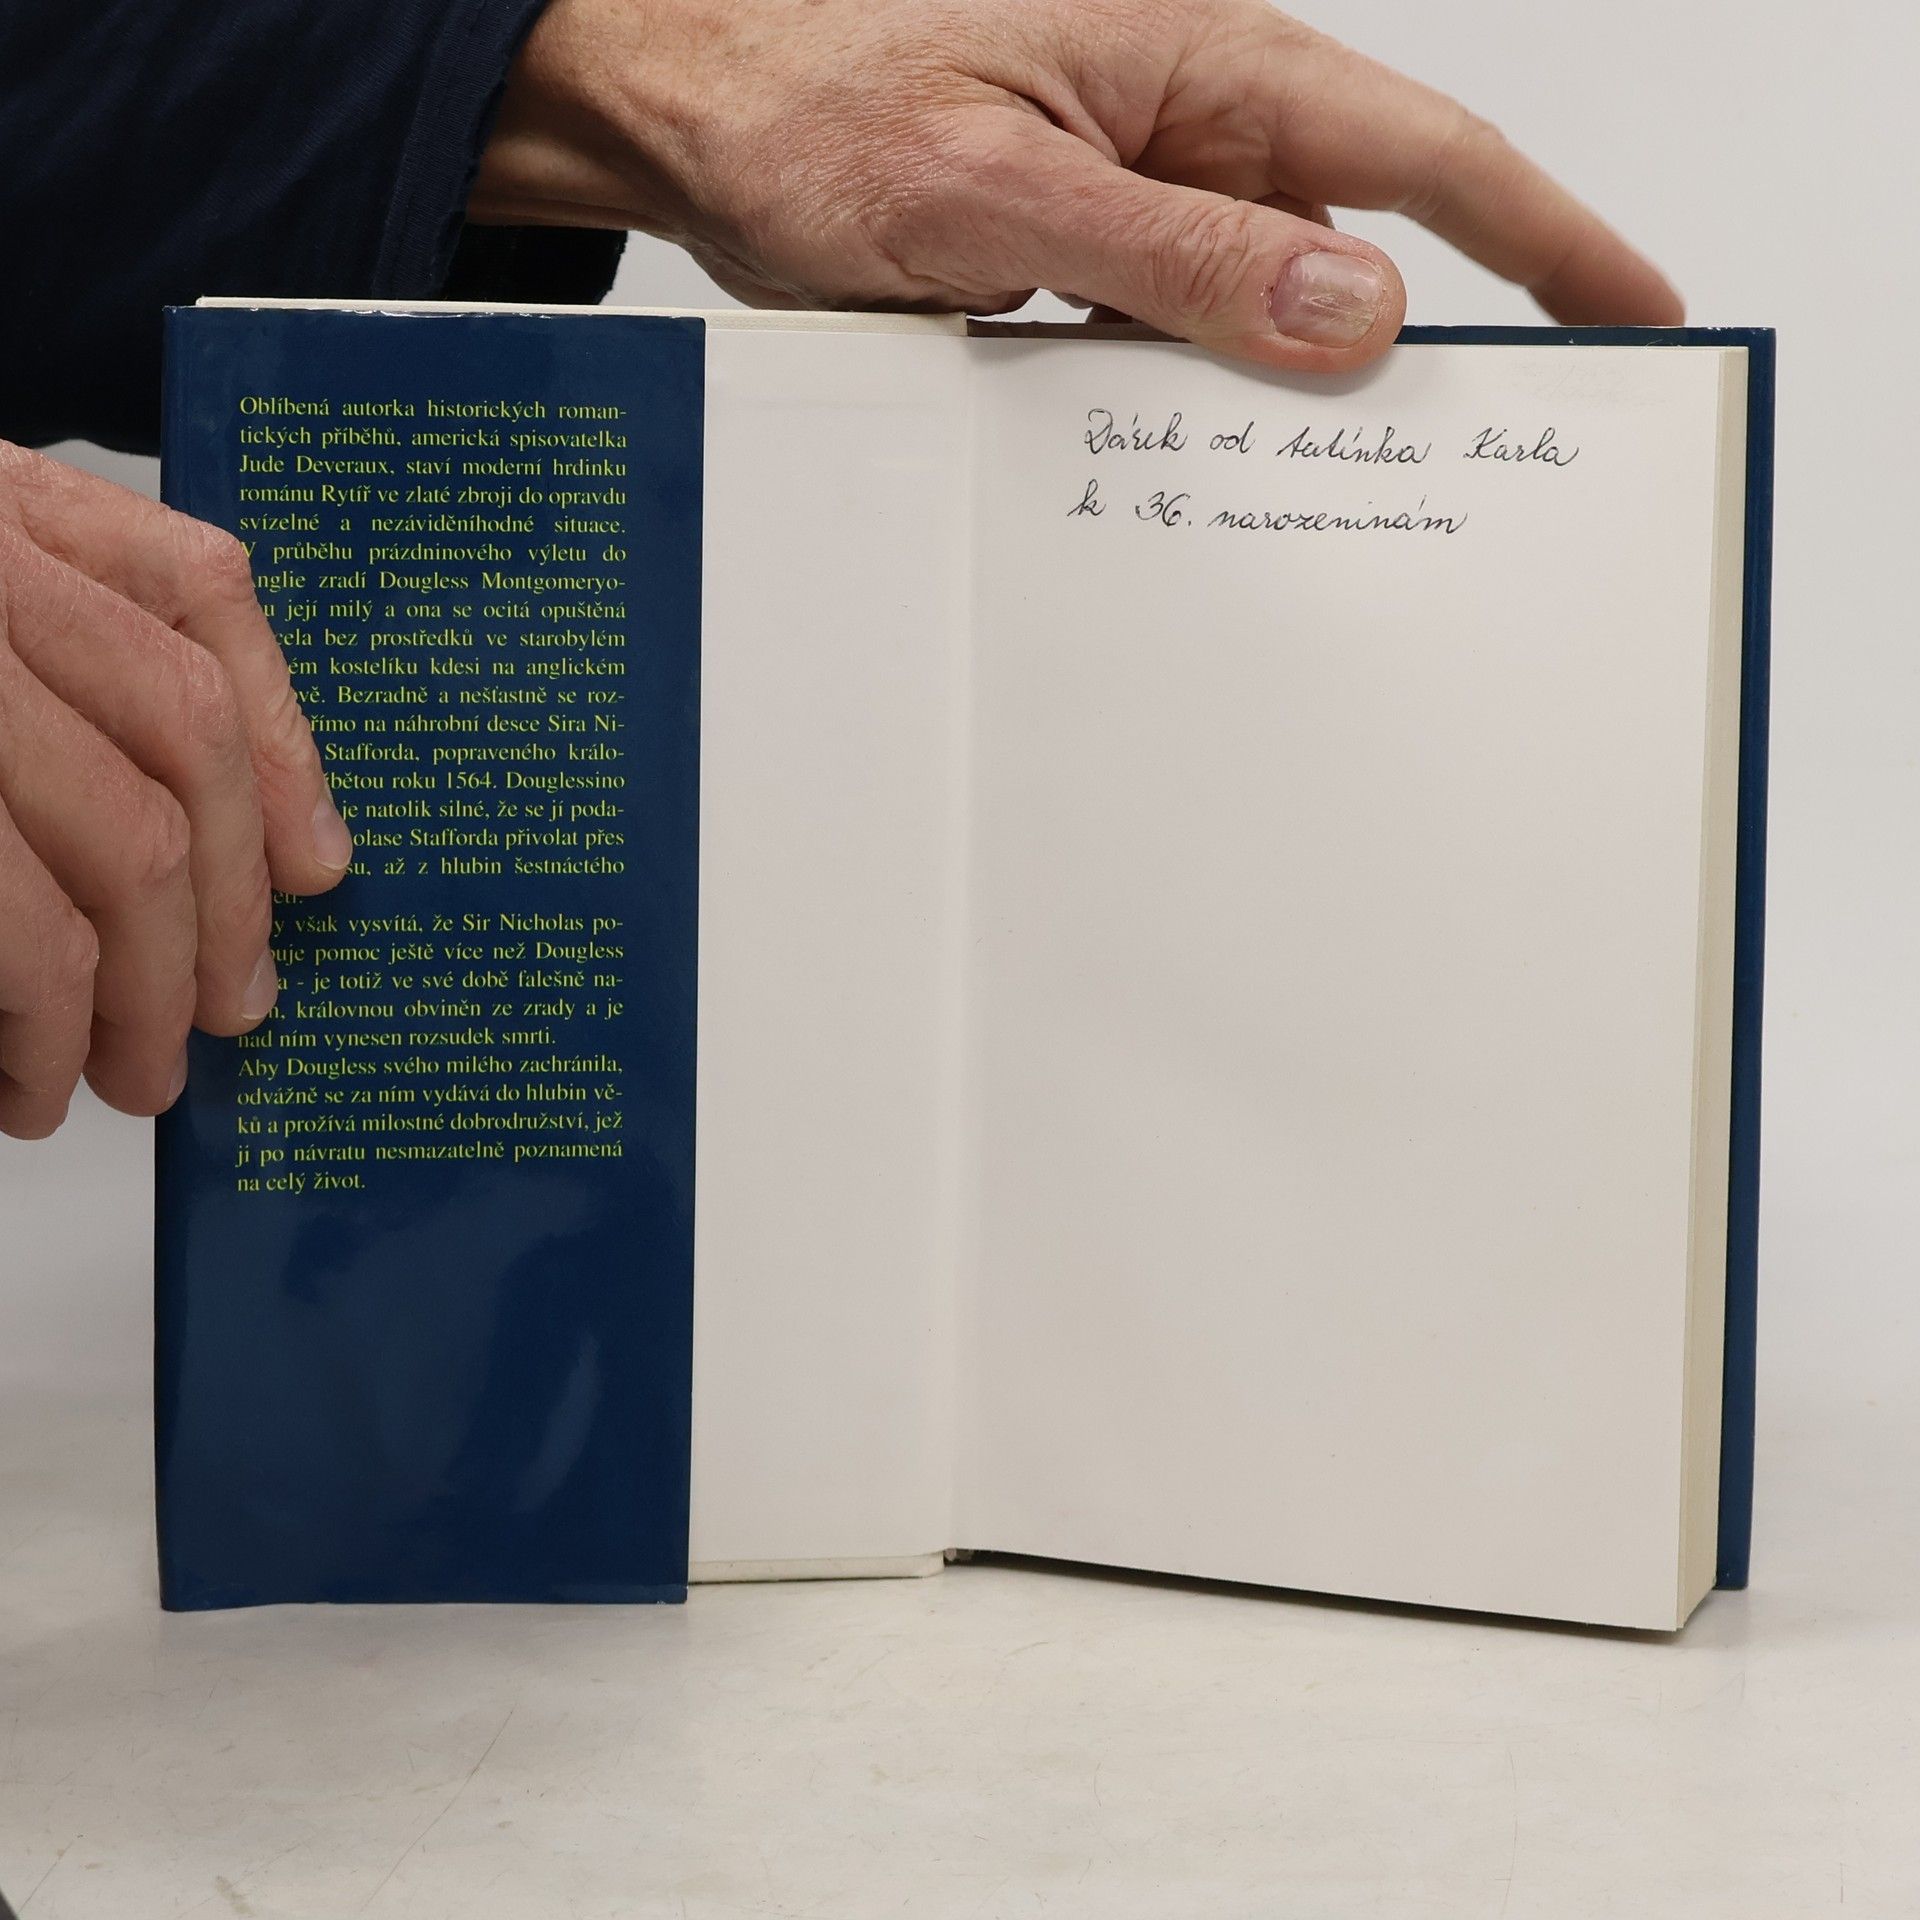 Oblíbená autorka historických roman-
tických příběhů, americká spisovatelka
Jude Deveraux, staví moderní hrdinku
románu Rytíř ve zlaté zbroji do opravdu
svízelné a nezáviděníhodné situace.
V průběhu prázdninového výletu do
nglie zradí Dougless Montgomeryo-
u její milý a ona se ocitá opuštěná
cela bez prostředků ve starobylém
ém kostelíku kdesi na anglickém
vě. Bezradně a nešťastně se roz-
římo na náhrobní desce Sira Ni-
Stafforda, popraveného králo-
bětou roku 1564. Douglessino
je natolik silné, že se jí poda-
olase Stafforda přivolat přes
su, až z hlubin šestnáctého
etí.
y však vysvítá, že Sir Nicholas po-
buje pomoc ještě více než Dougless
a - je totiž ve své době falešně na-
n, královnou obviněn ze zrady a je
nad ním vynesen rozsudek smrti.
Aby Dougless svého milého zachránila,
odvážně se za ním vydává do hlubin vě-
ků a prožívá milostné dobrodružství, jež
ji po návratu nesmazatelně poznamená
na celý život.
Dárek od tatínka Karla
k 36. narozeninám